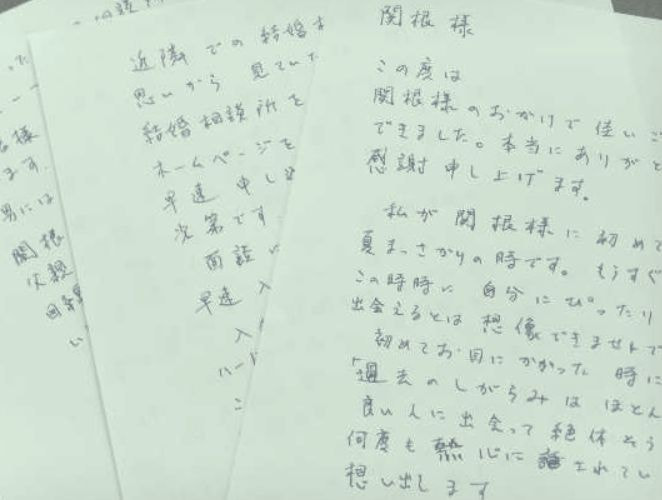 関根様
この度は
関根様のおかげで佳いご
できました。本当にありがと
感謝申し上げます。
私が関根様に初めて
夏まっさかりの時です。もうすぐ
この時時に自分にぴったり
出会えるとは想像できませんで
初めてお目にかかった時に
「過去のしがらみはほとん
良い人に出会って絶体そう
何度も熱心に話されてい
想い出します
近隣での結婚
思いから見ていた
結婚相談所を
ホームページを
早速申し
次第です
面談
早速入
入
ハード
こ
様
ます。
男には
関根
父親
い